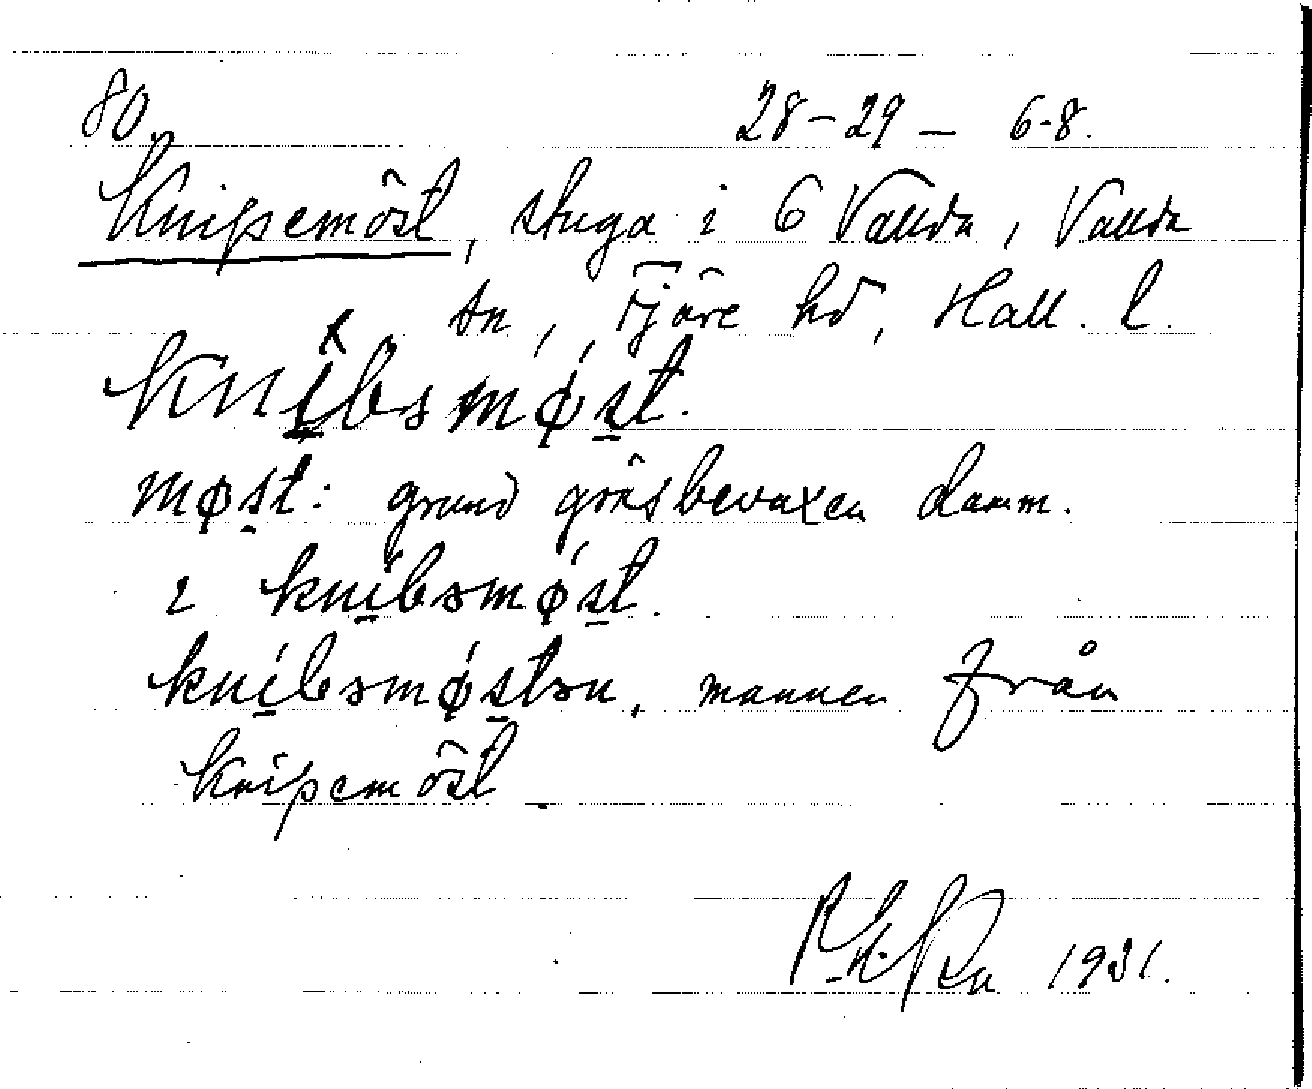 80. 28-29 – 6-8.
Knipemöst, stuga i 6 Vallda, Vallda
sn, Fjäre hd, Hall. l.
knibəmøst.
møst: grund gräsbevaxen damm.
i knibəmøst.
knibəmøstən, mannen från
Knipemöst.
1931.